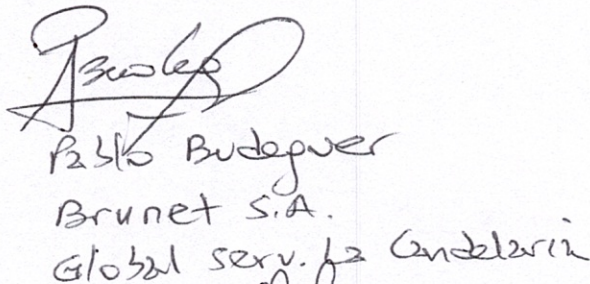 Pablo Budeguer
Brunet S.A.
Global serv. La Candelaria